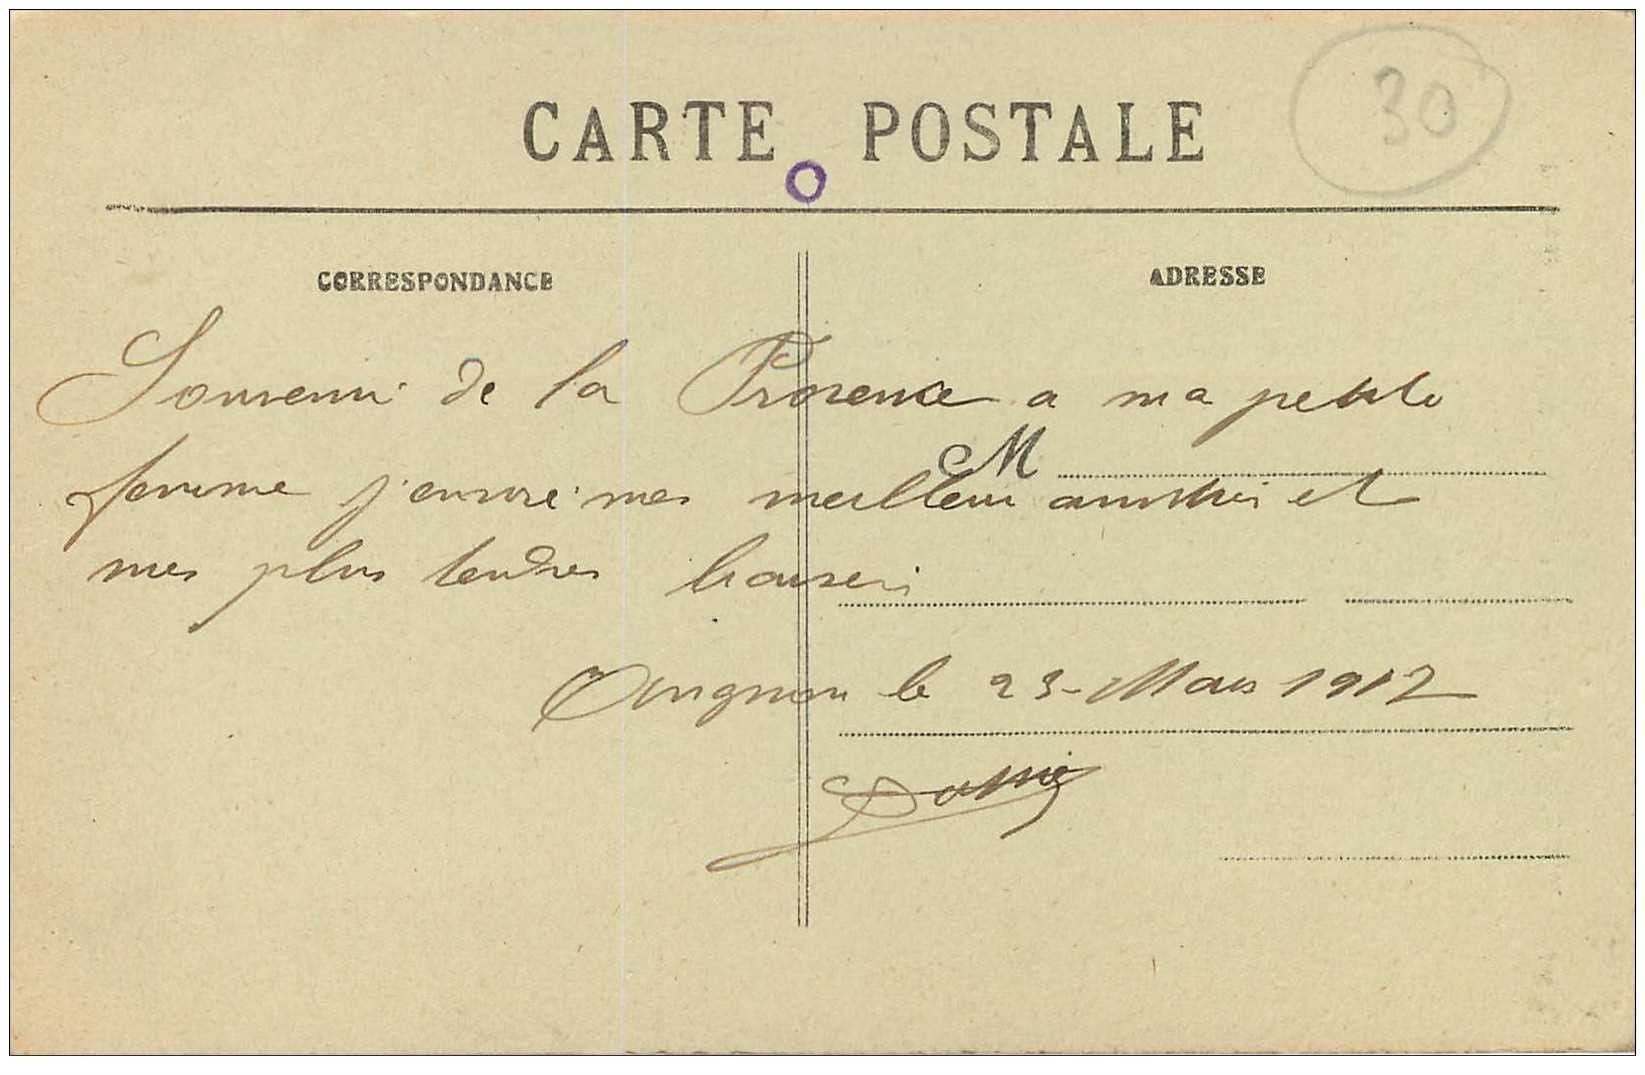 CARTE POSTALE
30
CORRESPONDANCE
ADRESSE
Souvenir de la Provence a ma petite
M
femme j'envoie mes meilleur amitiés et
mes plus tendres baisers
Avignon le 23 - Mars 1912